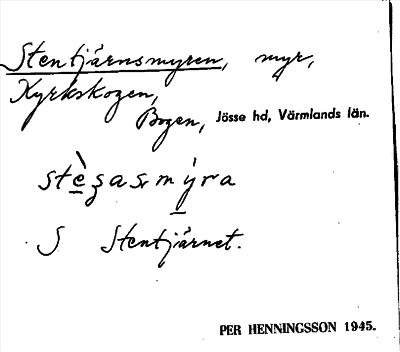 Stentjärnsmyren, myr,
Kyrkskogen,
Bogen, Jösse hd, Värmlands län.
S Stentjärnet.
PER HENNINGSSON 1945.